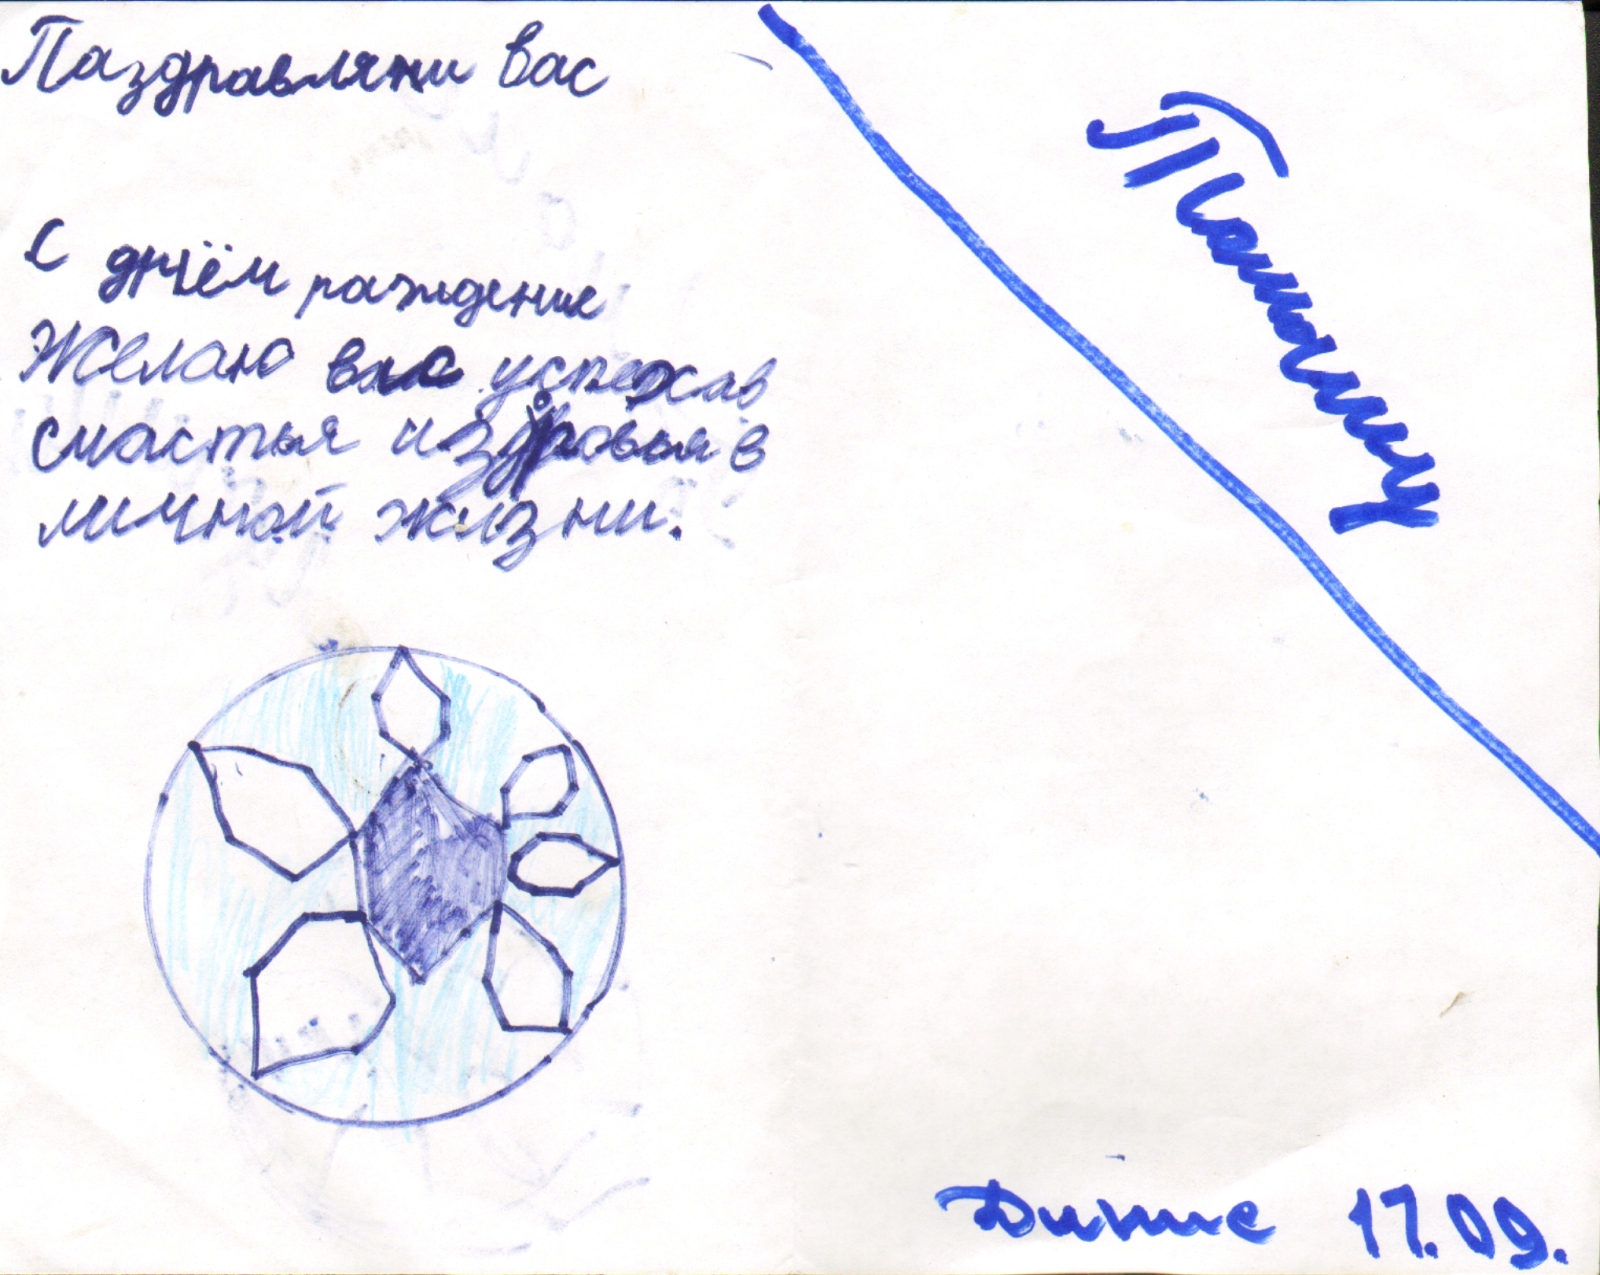 Паздравляни вас
С днём раждение
Желаю вас успехав
счастья и здровья в
личной жизни.
17.09.